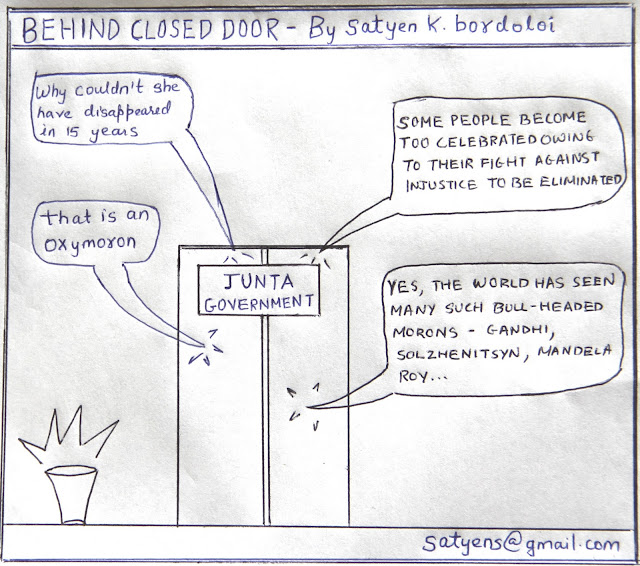 BEHIND CLOSED DOOR - By Satyen K. bordoloi
Why couldn't she
have disappeared
in 15 years
SOME PEOPLE BECOME
TOO CELEBRATED OWING
TO THEIR FIGHT AGAINST
INJUSTICE TO BE ELIMINATED
that is an
oxymoron
YES, THE WORLD HAS SEEN
MANY SUCH BULL-HEADED
MORONS - GANDHI,
SOLZHENITSYN, MANDELA
ROY...
JUNTA
GOVERNMENT
satyens@gmail.com